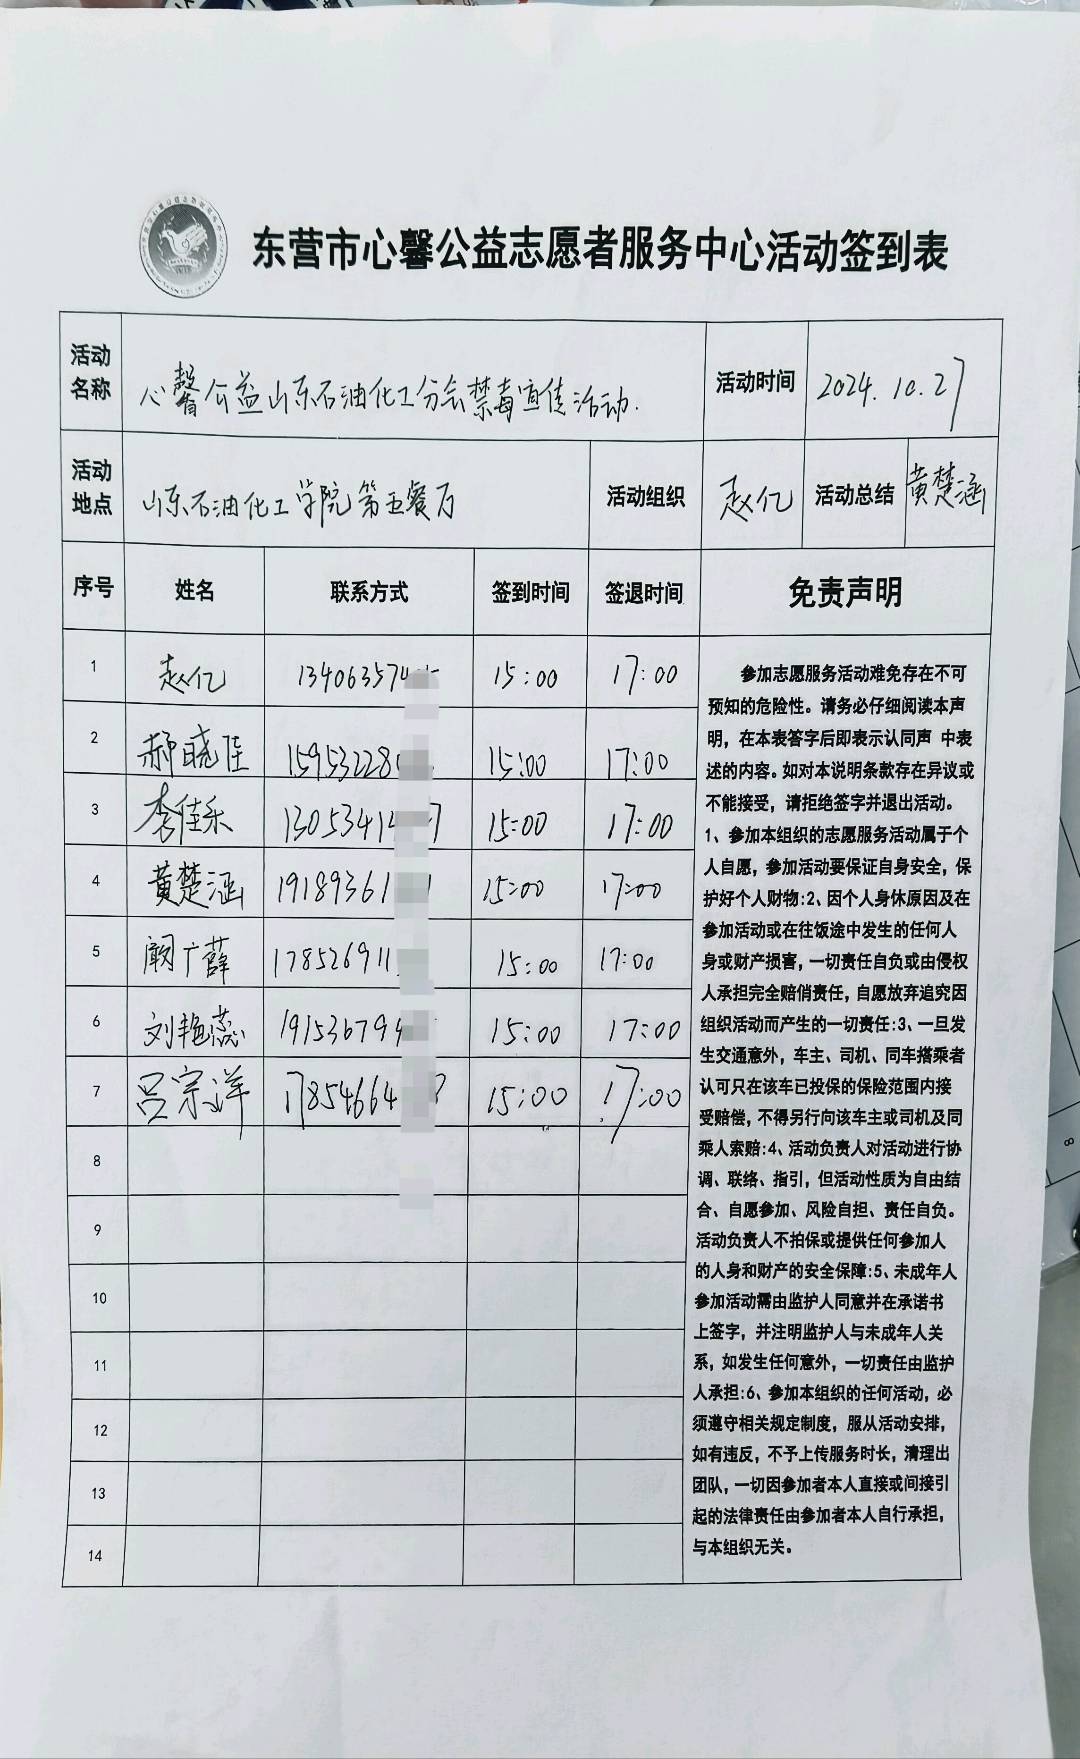 东营市心馨公益志愿者服务中心活动签到表
活动名称 心馨公益山东石油化工分会禁毒宣传活动. 活动时间 2024.10.27
活动地点 山东石油化工学院第五餐厅 活动组织 赵亿 活动总结 黄楚涵
序号 姓名 联系方式 签到时间 签退时间 免责声明
1 赵亿 134063574 15:00 17:00
2 郝晓佳 159532280 15:00 17:00
3 李佳乐 13053414 7 15:00 17:00
4 黄楚涵 19189361 1 15:00 17:00
5 阚广薛 178526911 15:00 17:00
6 刘艳蕊 191536794 15:00 17:00
7 吕宗洋 17854664 7 15:00 17:00
8
9
10
11
12
13
14
参加志愿服务活动难免存在不可
预知的危险性。请务必仔细阅读本声
明，在本表答字后即表示认同声 中表
述的内容。如对本说明条款存在异议或
不能接受，请拒绝签字并退出活动。
1、参加本组织的志愿服务活动属于个
人自愿，参加活动要保证自身安全，保
护好个人财物:2、因个人身休原因及在
参加活动或在往饭途中发生的任何人
身或财产损害，一切责任自负或由侵权
人承担完全赔俏责任，自愿放弃追究因
组织活动而产生的一切责任:3、一旦发
生交通意外，车主、司机、同车搭乘者
认可只在该车已投保的保险范围内接
受赔偿，不得另行向该车主或司机及同
乘人索赔:4、活动负责人对活动进行协
调、联络、指引，但活动性质为自由结
合、自愿参加、风险自担、责任自负。
活动负责人不拍保或提供任何参加人
的人身和财产的安全保障:5、未成年人
参加活动需由监护人同意并在承诺书
上签字，并注明监护人与未成年人关
系，如发生任何意外，一切责任由监护
人承担:6、参加本组织的任何活动，必
须遵守相关规定制度，服从活动安排，
如有违反，不予上传服务时长，清理出
团队，一切因参加者本人直接或间接引
起的法律责任由参加者本人自行承担，
与本组织无关。